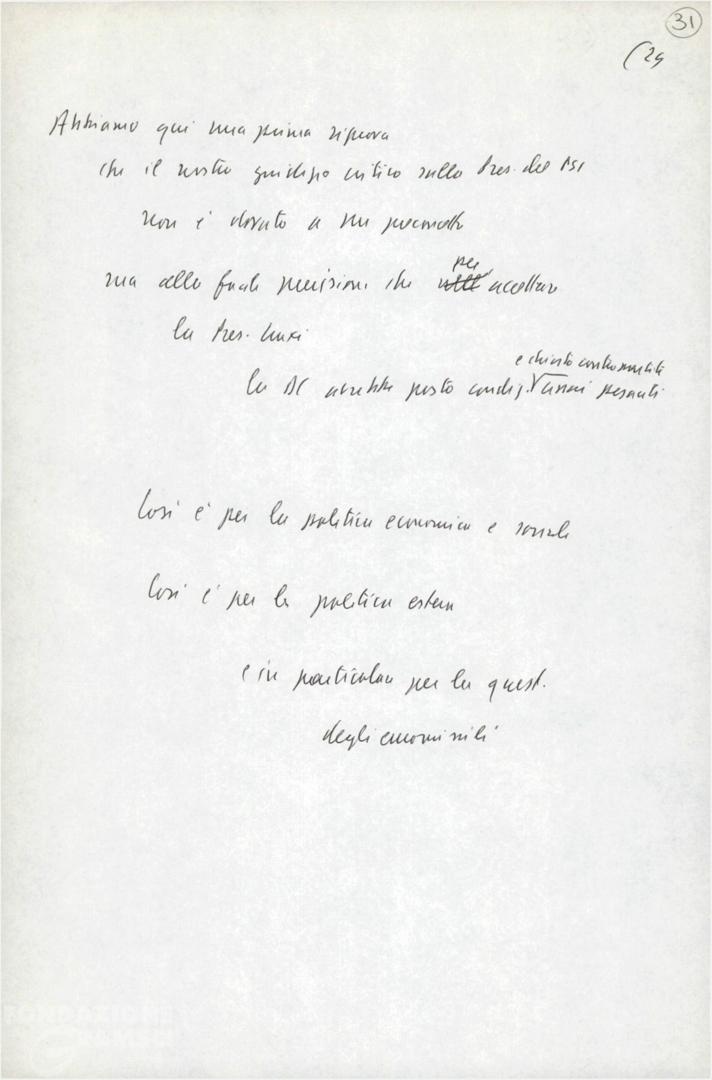 31
(29
Abbiamo qui una prima riprova
che il nostro giudizio critico sulla Pres. del PSI
non è dovuto a un
ma alla facile previsione che per accettare
la Pres. Craxi
la DC avrebbe posto condiz. e chiesto contropartite assai pesanti
Così è per la politica economica e sociale
Così è per la politica estera
e in particolare per la quest.
degli euromissili
FONDAZIONE
GRAMSCI